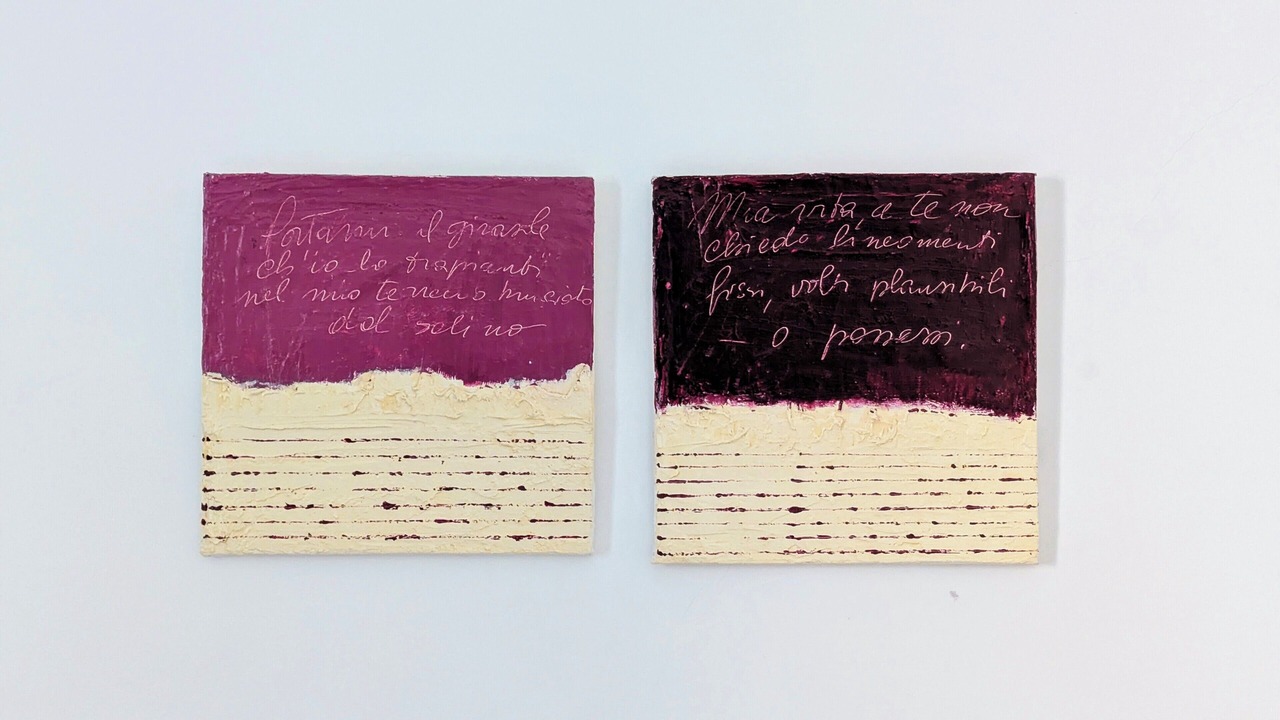 Portami il girasole
ch'io lo trapianti
nel mio terreno bruciato
dal salino
Mia vita, a te non
chiedo lineamenti
fissi, volti plausibili
– o possessi.